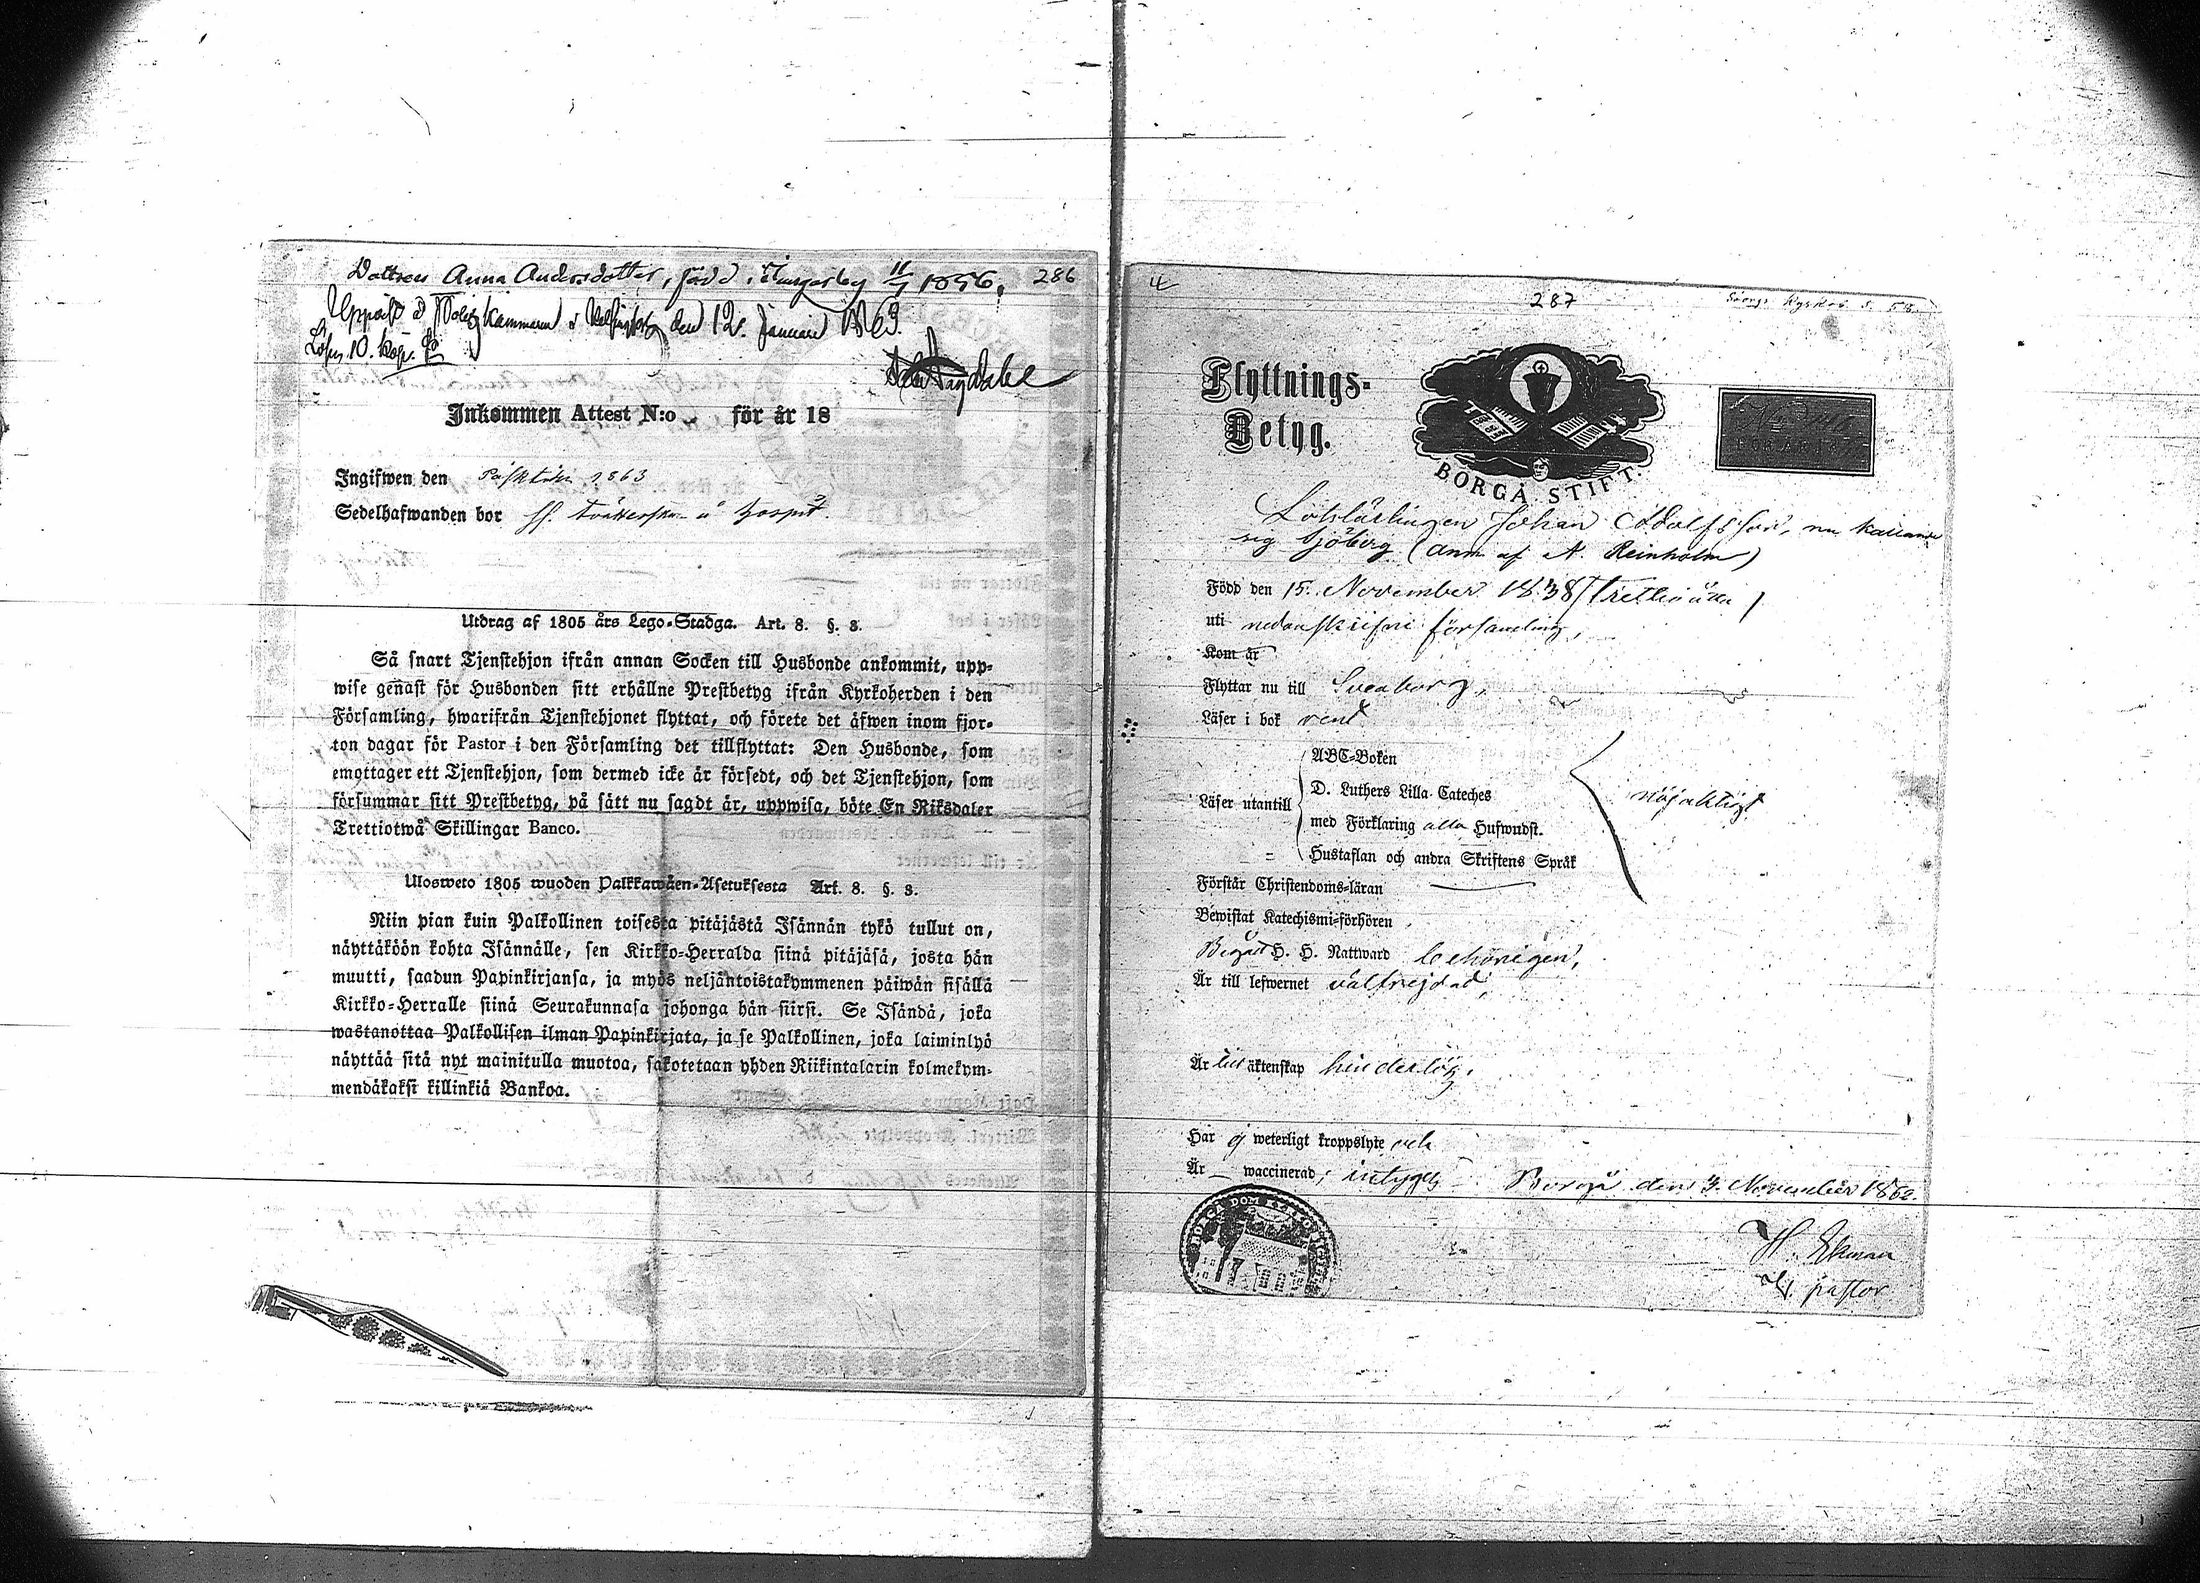 Dottren Anna Andersdotter, född i Tungerby 11/7 1856.
286
Uppvist å Poliskammaren i Helsingfors den 12. Januari 1863.
Lösen 10. kop.
Inkommen Attest N:o för år 18
Ingifwen den Påsktiden 1863
Sedelhafwanden bor
Utdrag af 1805 års Lego-Stadga. Art. 8. §. 8.
Så snart Tjenstehjon ifrån annan Socken till Husbonde ankommit, upp-
wise genast för Husbonden sitt erhållne Prestbetyg ifrån Kyrkoherden i den
Församling, hwarifrån Tjenstehjonet flyttat, och förete det äfwen inom fjor-
ton dagar för Pastor i den Församling det tillflyttat: Den Husbonde, som
emottager ett Tjenstehjon, som dermed icke är försedt, och det Tjenstehjon, som
försummar sitt Prestbetyg, på sätt nu sagdt är, uppwisa, böte En Riksdaler
Trettiotwå Skillingar Banco.
Uloswetо 1805 wuoden Palkkawäen-Asetuksesta Art. 8. §. 8.
Niin pian kuin Palkollinen toisesta pitäjästä Isännän tykö tullut on,
näyttäköön kohta Isännälle, sen Kirkko-Herralda siinä pitäjäsä, josta hän
muutti, saadun Papinkirjansa, ja myös neljäntoistakymmenen päiwän sisällä
Kirkko-Herralle siinä Seurakunnasa johonga hän siirsi. Se Isändä, joka
wastanottaa Palkollisen ilman Papinkirjata, ja se Palkollinen, joka laiminlyö
näyttää sitä nyt mainitulla muotoa, sakotetaan yhden Riikintalarin kolmekym-
mendäkaksi killinkiä Bankoa.
287
Flyttnings-
Betyg.
BORGÅ STIFT.
N:o
FÖR ÅR 18
Lotslärlingen Johan Adolfsson, nu kallande
sig Sjöberg (ann. af A. Reinholm)
Född den 15. November 1838 /Trettioåtta/
uti nedanskrifne församling,
Kom år
Flyttar nu till Sveaborg,
Läser i bok rent
Läser utantill
ABC-Boken
D. Luthers Lilla Cateches
med Förklaring alla Hufwudst.
Hustaflan och andra Skriftens Språk
nöjaktigt
Förstår Christendoms-läran
Bewistat Katechismi-förhören
Begått H. H. Nattward behörigen,
Är till lefwernet välfrejdad,
Är till äktenskap hinderlös,
Har ej weterligt kroppslyte och
Är waccinerad; intygas Borgå den 3. November 1862.
H. Ekman
v. pastor